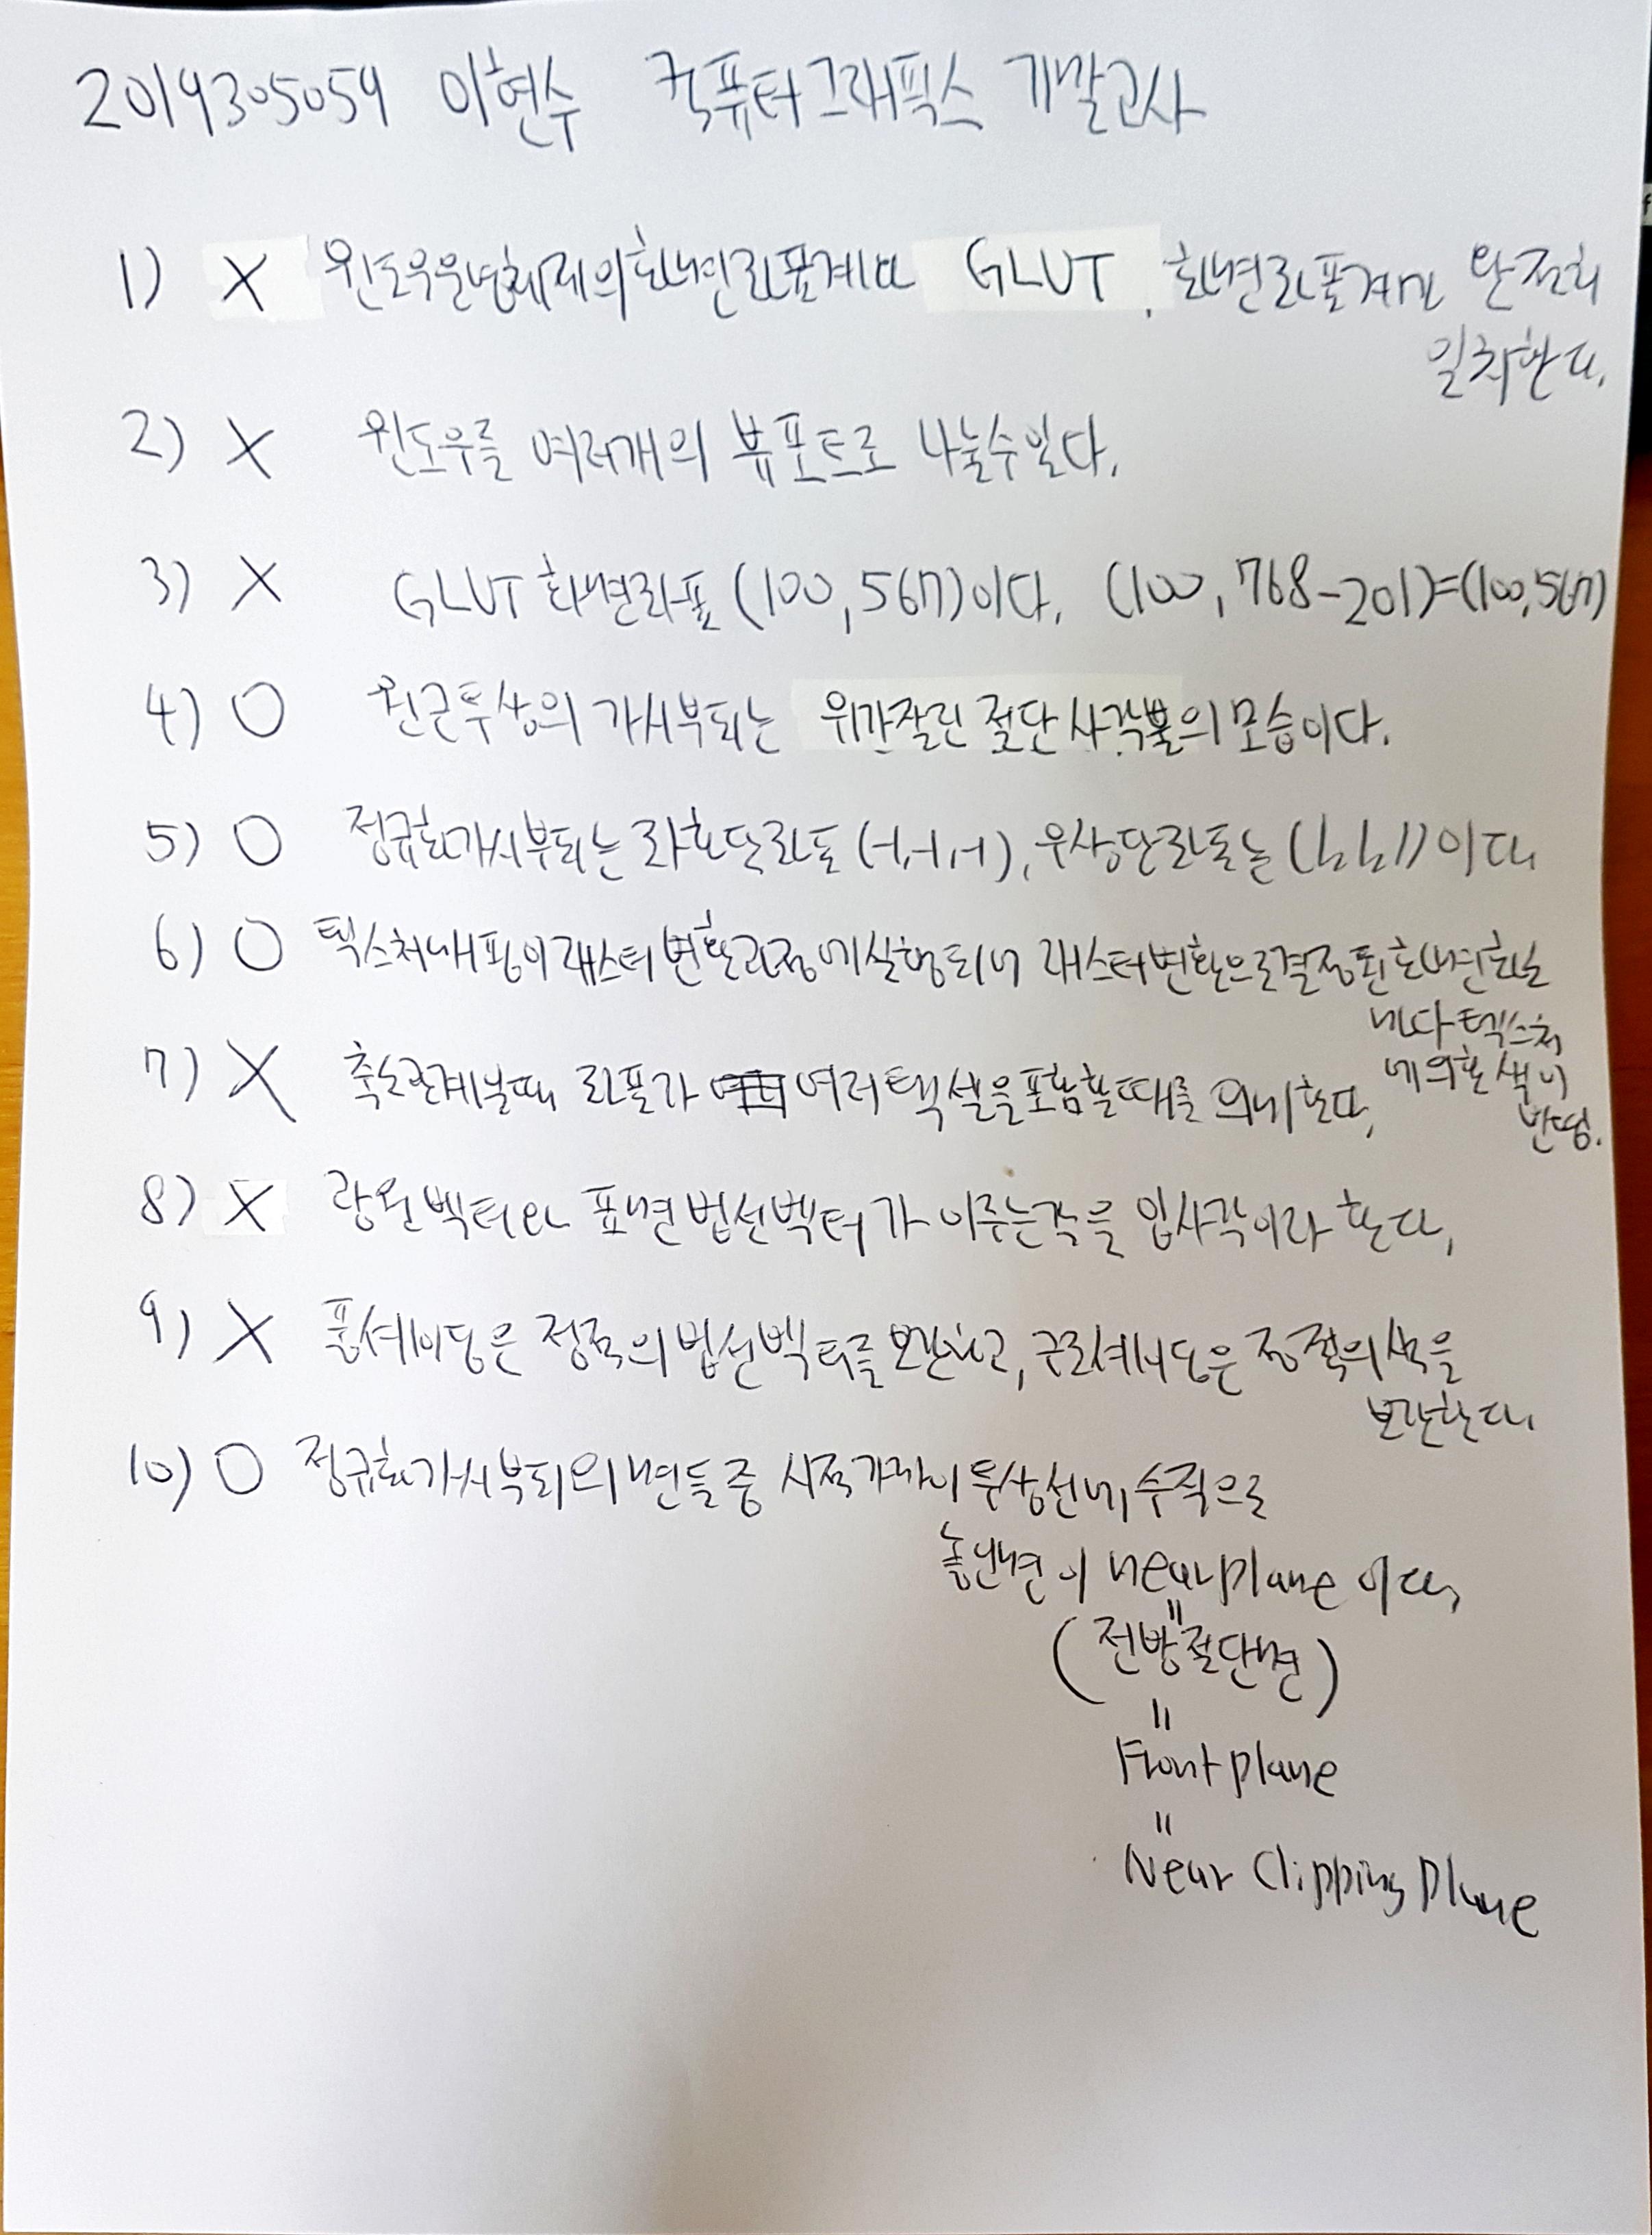 2019305059 이현수 컴퓨터그래픽스 기말고사
1) X 윈도우운영체제의화면좌표계와 GLUT 화면좌표계가 완전히
일치한다.
2) X 윈도우를 여러개의 뷰포트로 나눌수있다.
3) X GLUT 화면좌표 (100,567)이다. (100, 768-201)=(100,567)
4) O 원근투상의 가시부피는 위가잘린 절단사각뿔의 모습이다.
5) O 정규화가시부피는 좌하단좌표 (-1,-1,-1), 우상단좌표는 (1,1,1)이다
6) O 텍스처매핑이래스터변환과정에실행되어 래스터변환으로결정된화면화소
에다 텍스처
에의한 색이
반영.
7) X 축소관계일때 좌표가 여러텍셀을포함할때를 의미한다.
8) X 광원벡터와 표면법선벡터가 이루는각을 입사각이라 한다.
9) X 퐁셰이딩은 정점의 법선벡터를 보간하고, 구로셰이딩은 정점의색을
보간한다.
10) O 정규화가시부피의면들중 시점가까이 투상선에 수직으로
놓인면이 near plane 이다,
=
(전방절단면)
=
Front plane
=
Near Clipping Plane